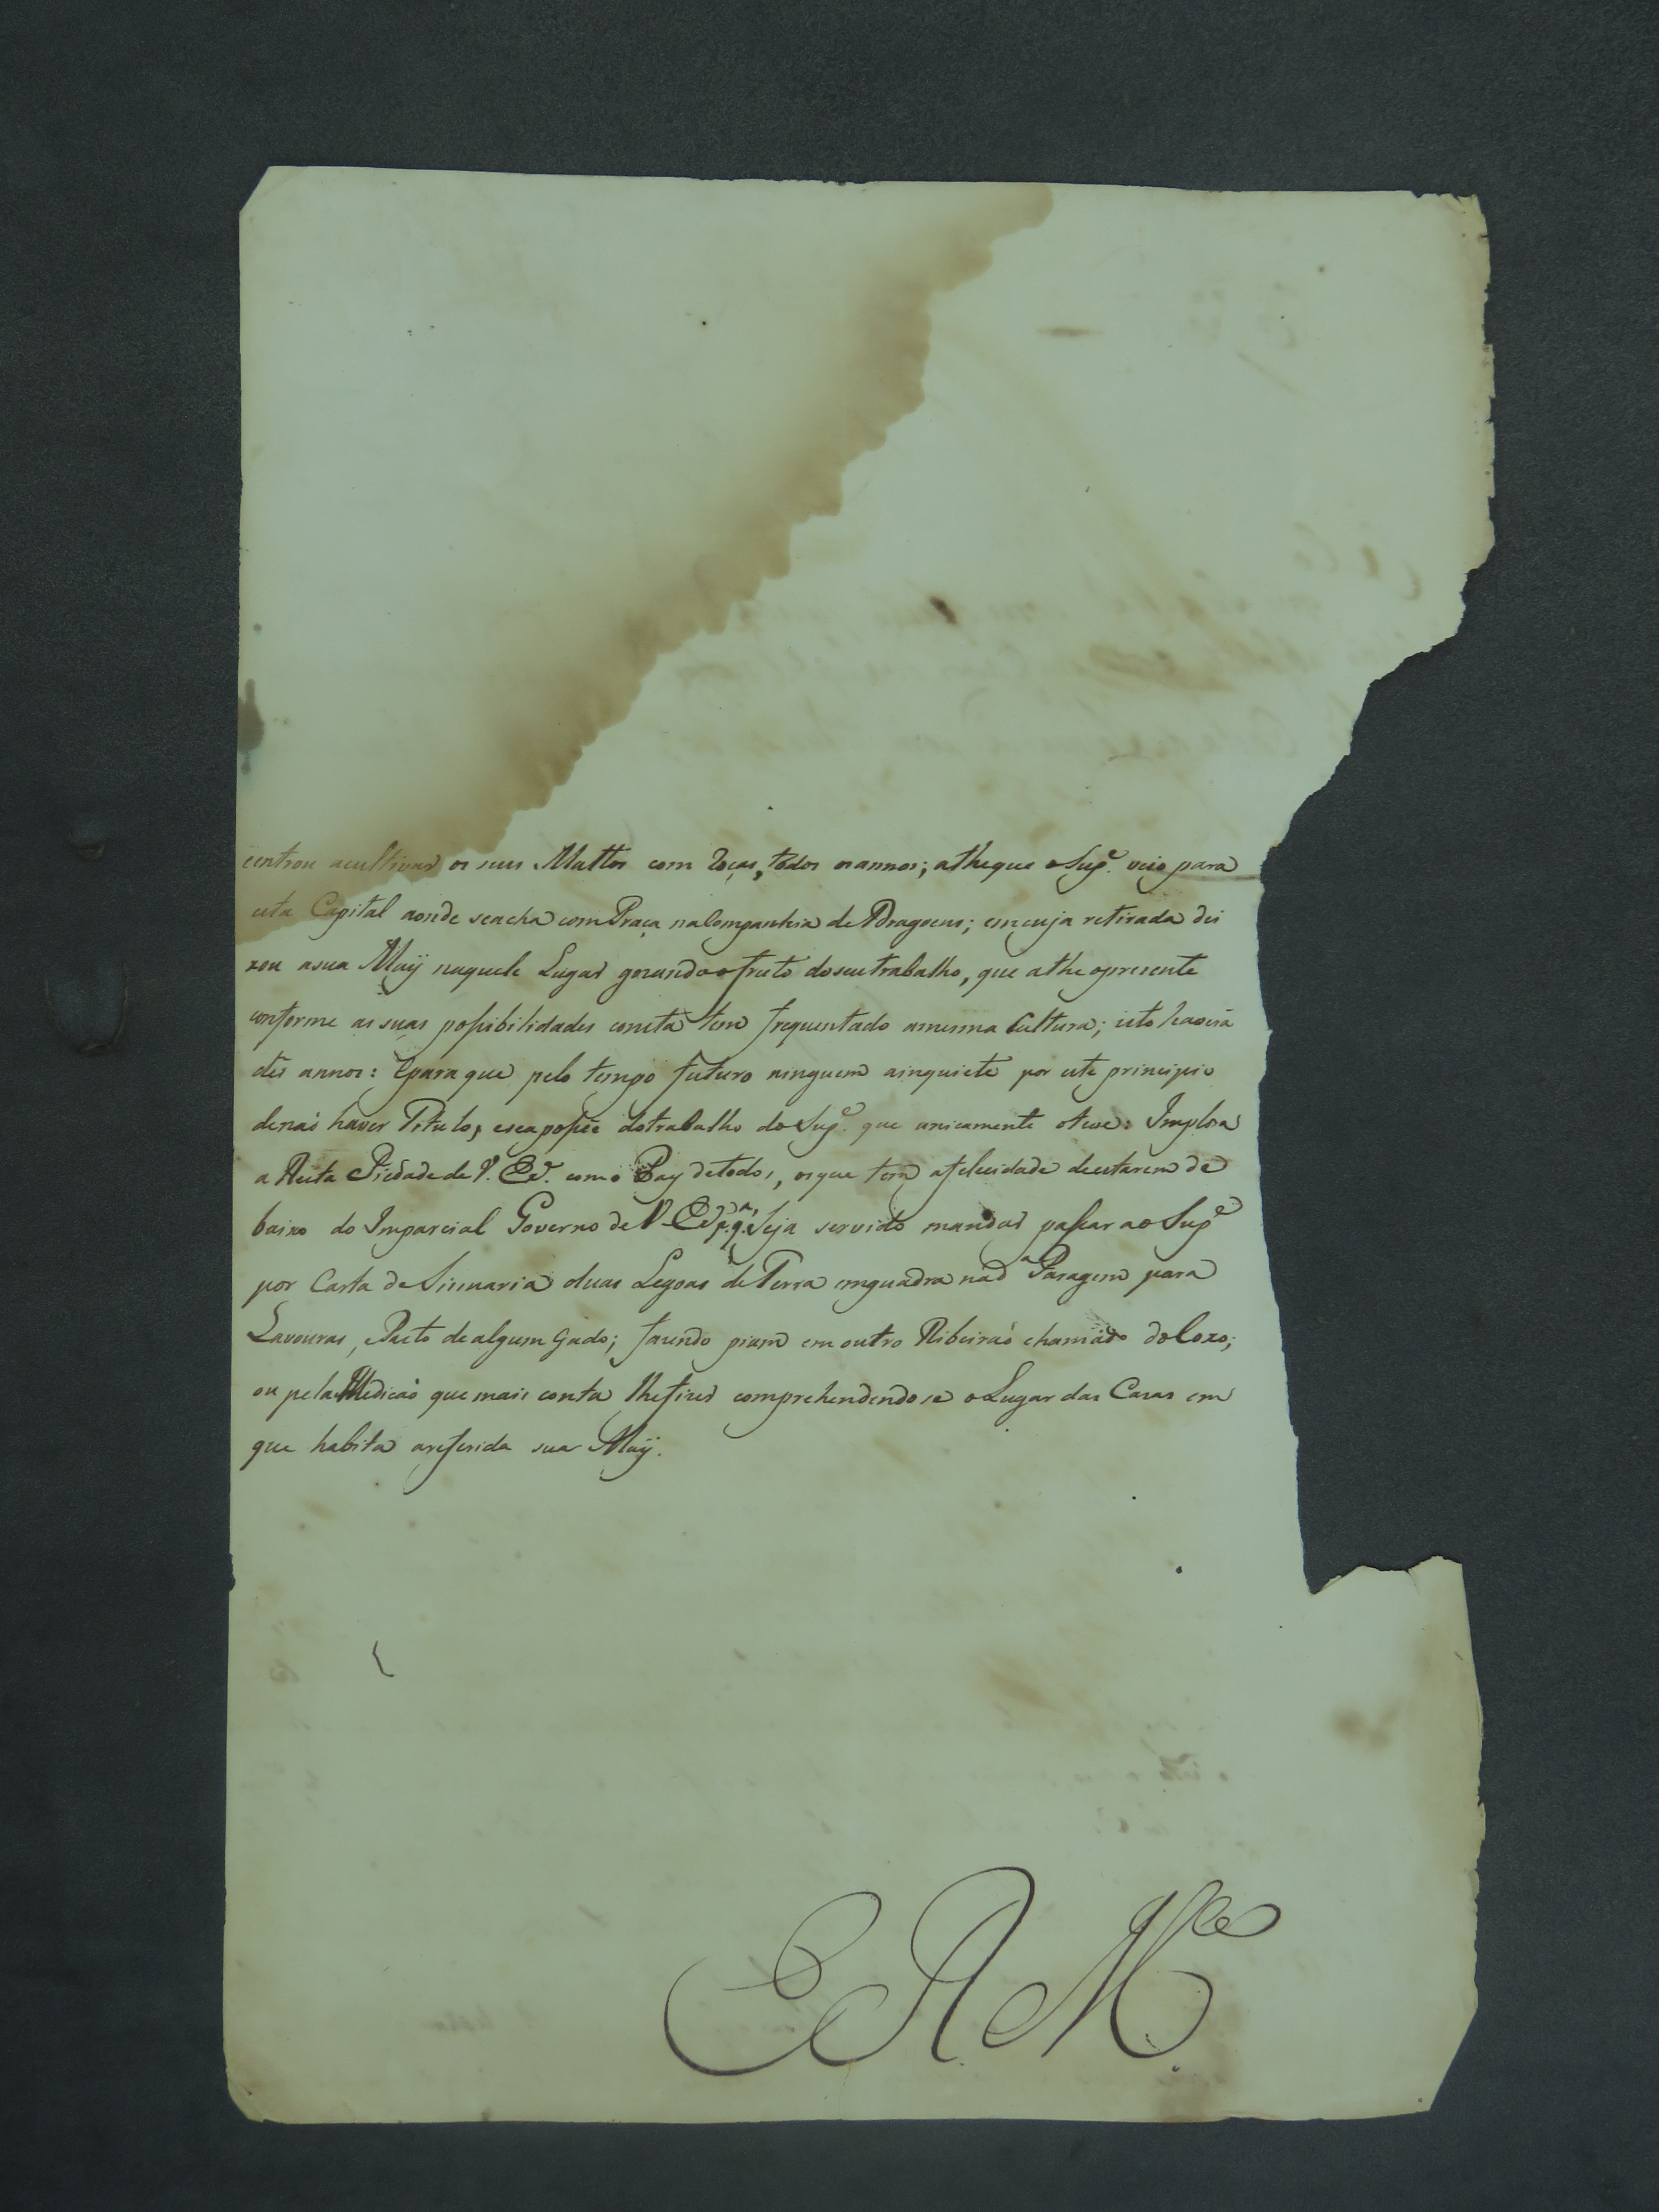 eentrou acultivar os seus Mattos com roças, todos osannos; atheque oSupe. veio para
esta Capital aonde seacha comPraça naCompanhia de Dragoens; emcuja retirada dei
xou asua Maÿ naquele Lugar gozando o fruto doseu trabalho, que athe opresente
conforme as suas possibilidades conesta tem frequentado amesma Cultura; isto haverá
dés annos: Epara que pelo tempo futuro ninguem ainquiete por este principio
denaõ haver Titulo, eseaposse dotrabalho do Supe. que unicamente oteve: Implora
a Recta Piedade de V. Exa. como Pay detodos, osque tem afelicidade deestarem de
baixo do Imparcial Governo de V. Exa. pa. q. Seja servido mandar passar ao Supe
por Carta de Sismaria duas Legoas de Terra emquadra na da Paragem para
Lavouras, ePasto dealgum Gado; fazendo piam em outro Ribeiraõ chamado do Coxo;
ou pela Medicaõ que mais conta lhefizer comprehendendose oLugar das Cazas em
que habita areferida sua Maÿ.
E R Mce